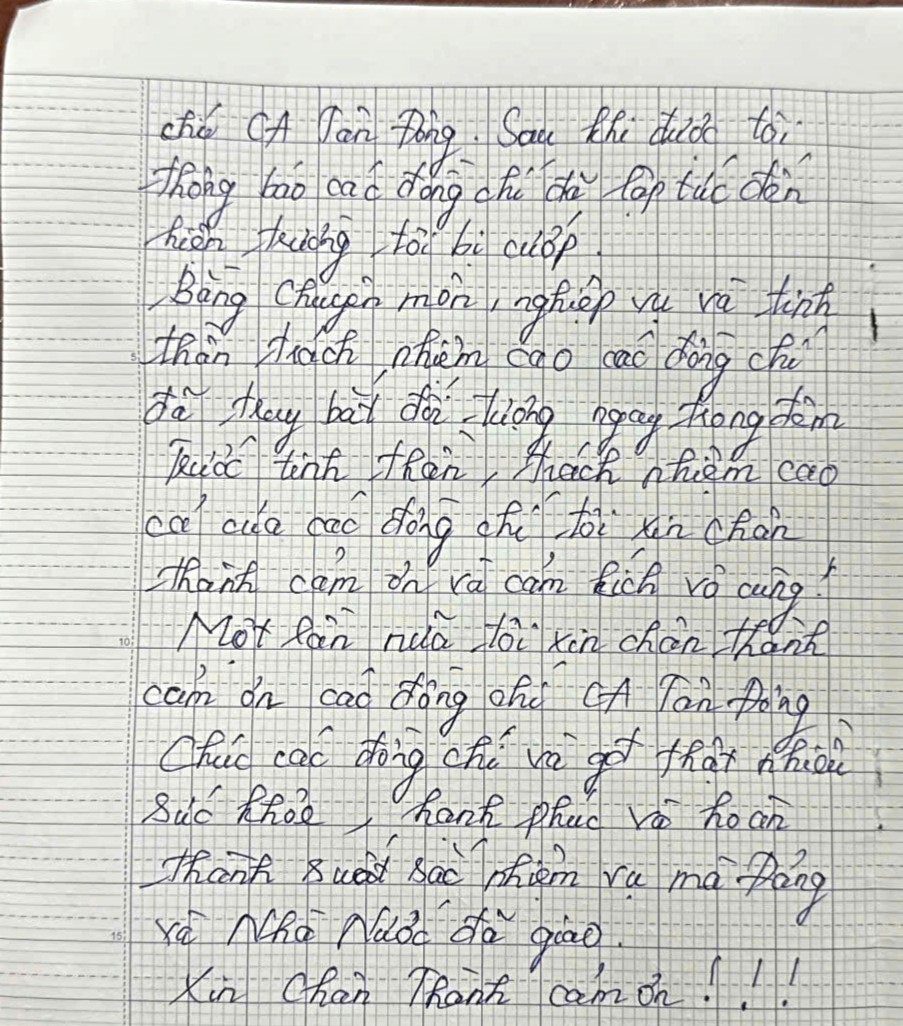 chí CA Tân Đông. Sau khi được tôi
thông báo các đồng chí đã lập tức đến
hiện trường tôi bị cướp.
Bằng chuyên môn, nghiệp vụ và tinh
5 thần trách nhiệm cao các đồng chí
đã truy bắt đối tượng ngay trong đêm
Trước tinh thần, trách nhiệm cao
cả của các đồng chí tôi xin chân
thành cảm ơn và cảm kích vô cùng!
10 Một lần nữa tôi xin chân thành
cảm ơn các đồng chí CA Tân Đông
Chúc các đồng chí và gđ thật nhiều
sức khỏe, hạnh phúc và hoàn
thành suất sắc nhiệm vụ mà Đảng
15 và Nhà Nước đã giao.
Xin Chân Thành cảm ơn!!!